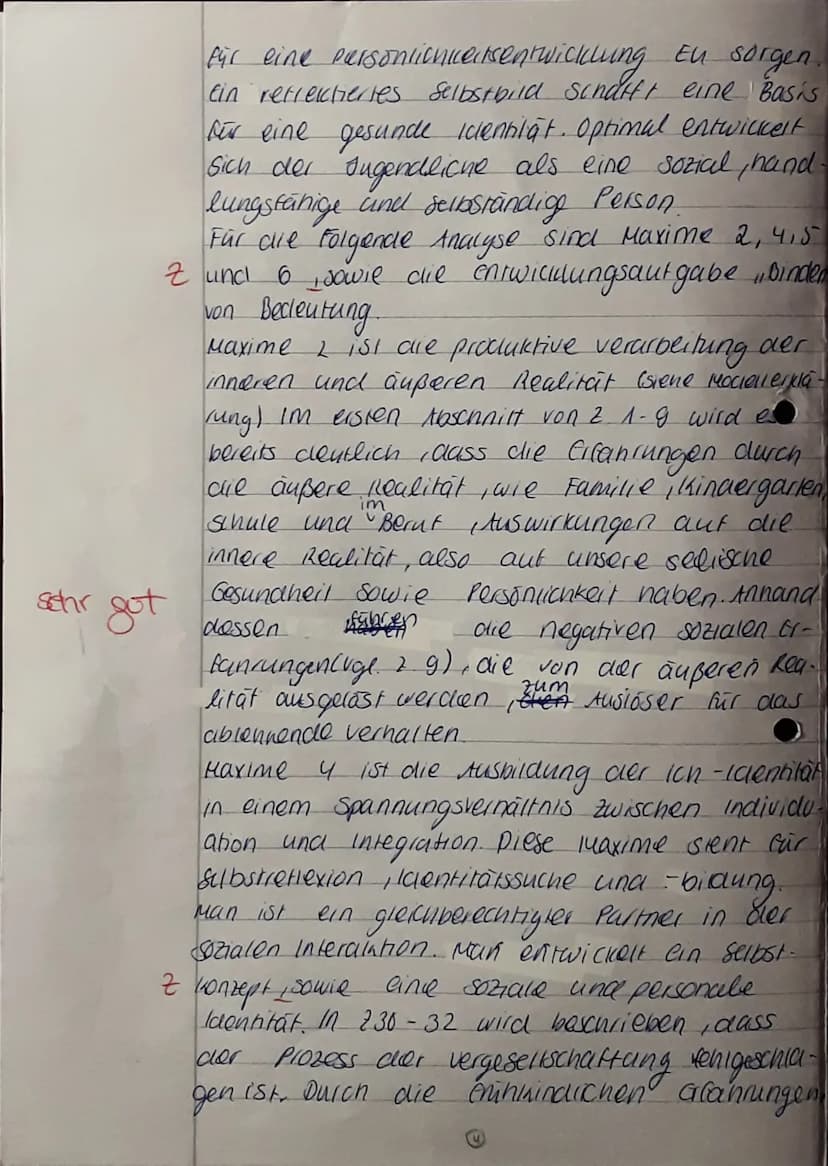 für eine Persönlichkeitsentwicklung zu sorgen.
Ein reflektiertes Selbstbild schafft eine Basis
für eine gesunde Identität. Optimal entwickelt
sich der Jugendliche als eine sozial, hand-
lungsfähige und selbständige Person.
Für die folgende Analyse sind Maxime 2, 4, 5
Z und 6, sowie die Entwicklungsaufgabe „Binden
von Bedeutung.
Maxime 2 ist die produktive Verarbeitung der
inneren und äußeren Realität (siehe Modellerklä-
rung) Im ersten Abschnitt von Z 1-9 wird es
bereits deutlich, dass die Erfahrungen durch
die äußere Realität, wie Familie, Kindergarten,
Schule und im Beruf, Auswirkungen auf die
innere Realität, also auf unsere seelische
sehr gut Gesundheit sowie Persönlichkeit haben. Anhand
dessen führen die negativen sozialen Er-
fahrungen (vgl. Z 9), die von der äußeren Rea-
lität ausgelöst werden, zum Auslöser für das
ablehnende Verhalten.
Maxime 4 ist die Ausbildung der Ich-Identität
in einem Spannungsverhältnis zwischen Individu-
ation und Integration. Diese Maxime steht für
Selbstreflexion, Identitätssuche und -bildung.
Man ist ein gleichberechtigter Partner in der
sozialen Interaktion. Man entwickelt ein Selbst-
Z konzept, sowie eine soziale und personale
Identität. In Z 30-32 wird beschrieben, dass
der Prozess der Vergesellschaftung fehlgeschla-
gen ist. Durch die frühkindlichen Erfahrungen
4